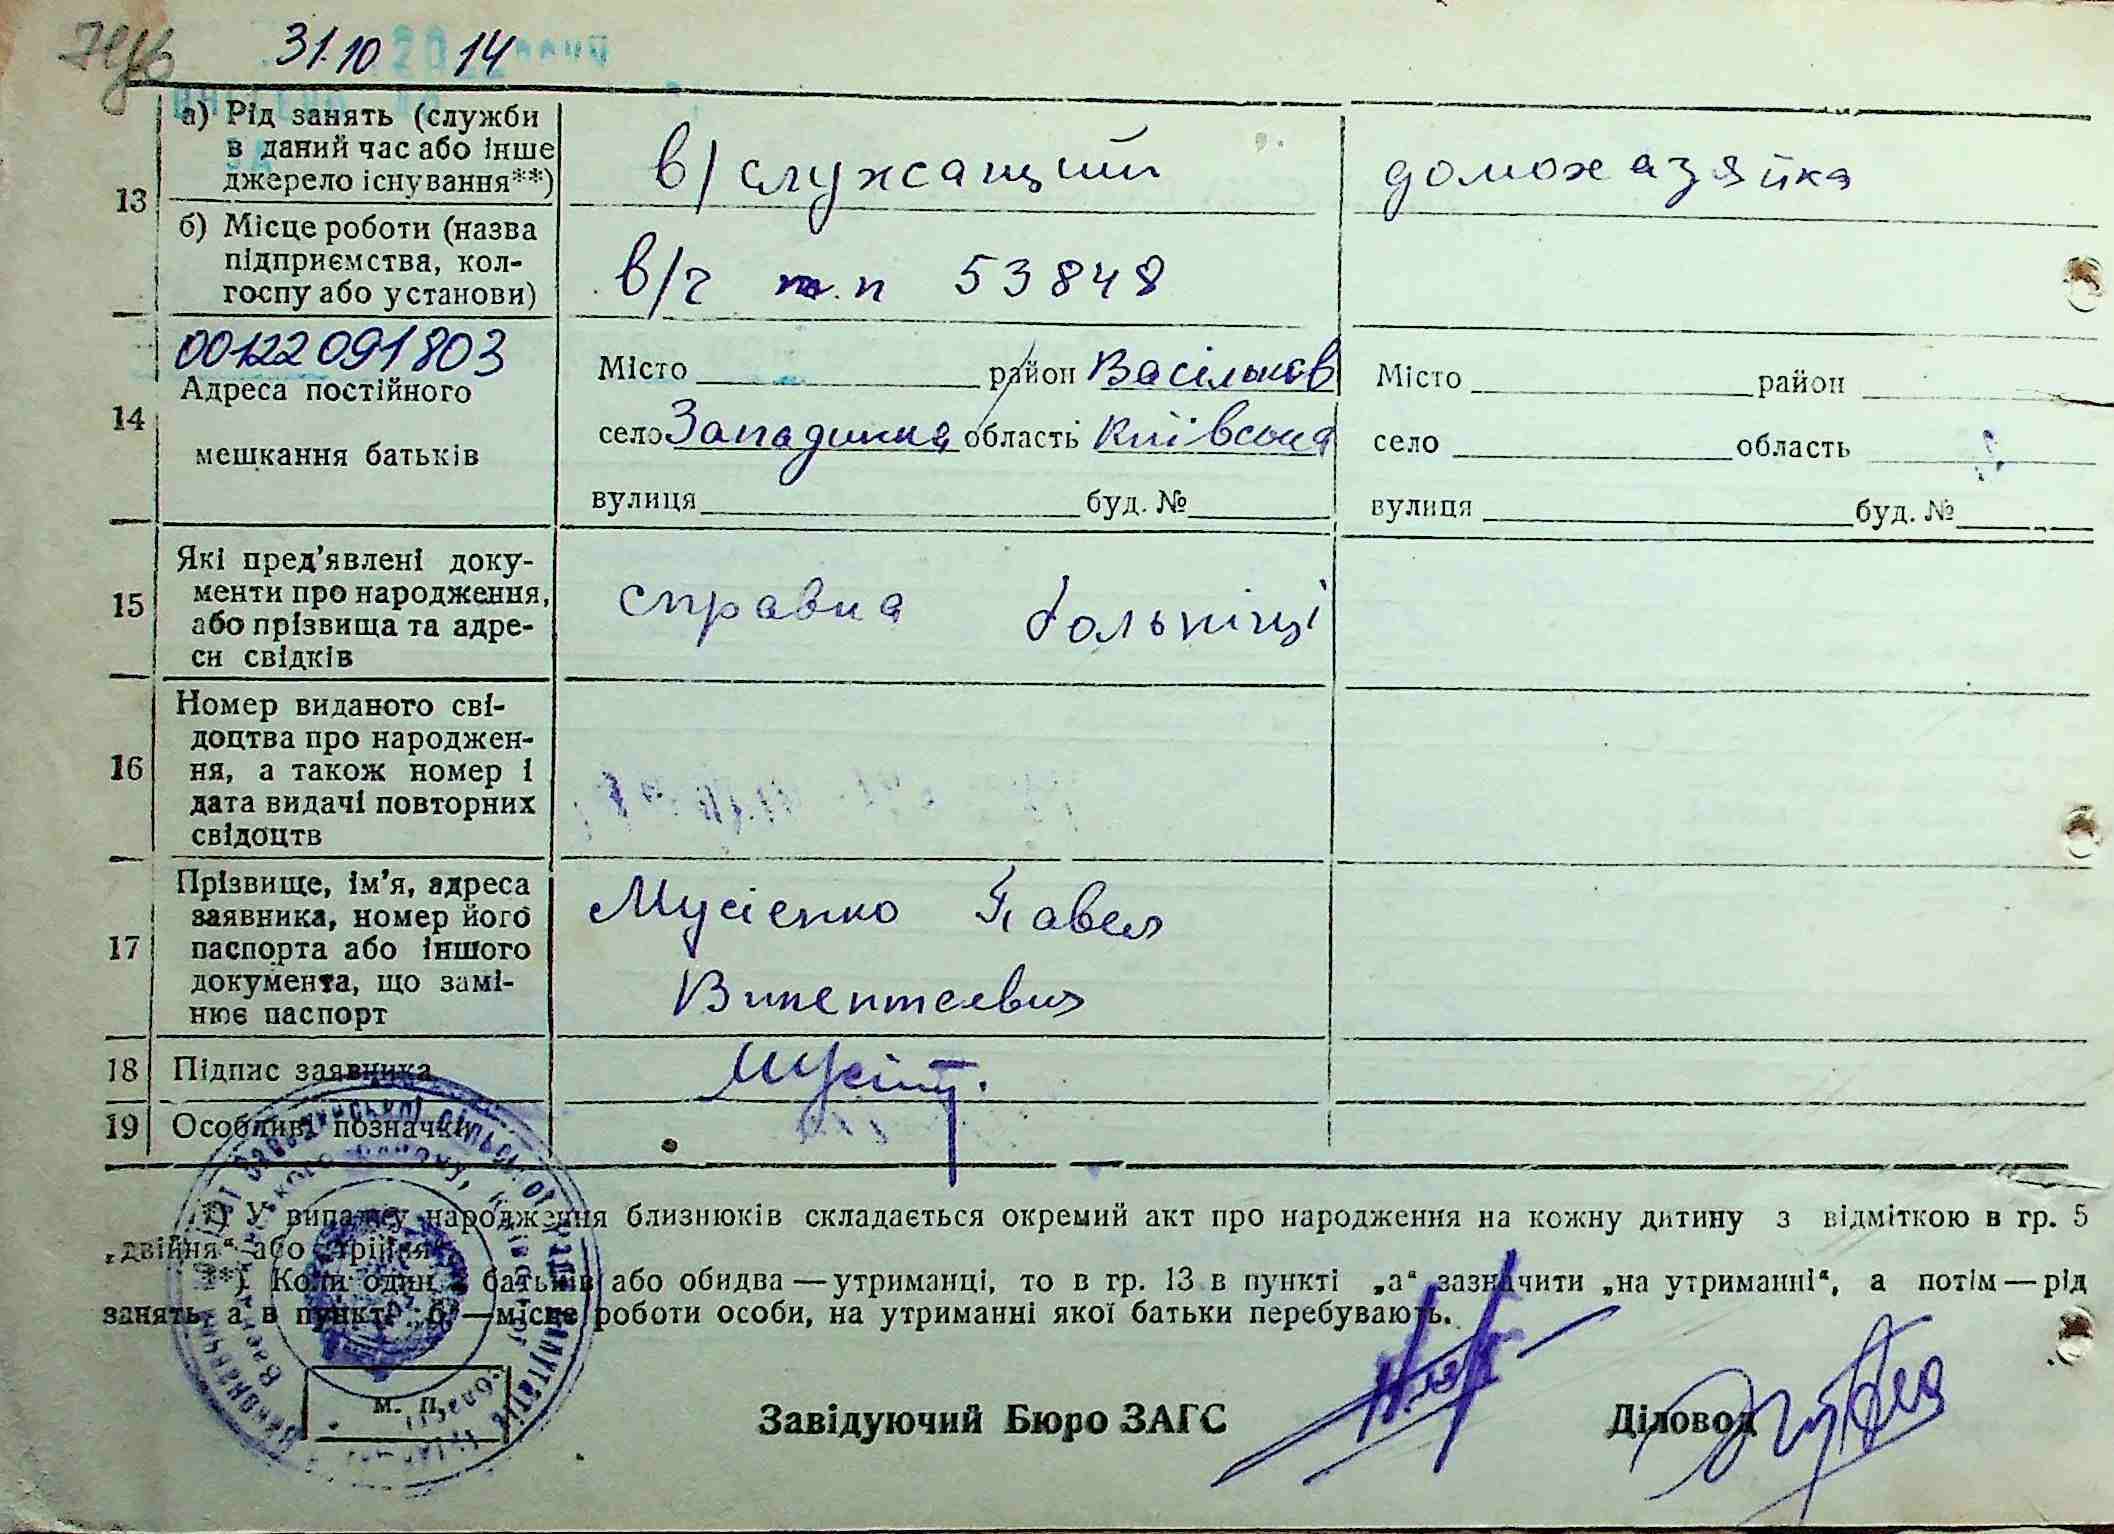 31.10 2014
а) Рід занять (служби
в даний час або інше
джерело існування**)
в/служащий
домохазяйка
13
б) Місце роботи (назва
підприємства, кол-
госпу або установи)
в/ч п.п 53848
00122091803
14
Адреса постійного
мешкання батьків
Місто район Васільков
село Западинка область Київська
вулиця буд. №
Місто район
село область
вулиця буд. №
15
Які пред’явлені доку-
менти про народження,
або прізвища та адре-
си свідків
справка больніці
16
Номер виданого сві-
доцтва про народжен-
ня, а також номер і
дата видачі повторних
свідоцтв
17
Прізвище, ім’я, адреса
заявника, номер його
паспорта або іншого
документа, що замі-
нює паспорт
Мусієнко Павел
Викентеевич
18 Підпис заявника
19 Особливі позначки
*) У випадку народження близнюків складається окремий акт про народження на кожну дитину з відміткою в гр. 5
„двійня“ або „трійня“.
**) Коли один з батьків або обидва — утриманці, то в гр. 13 в пункті „а“ зазначити „на утриманні“, а потім — рід
занять, а в пункті „б“ — місце роботи особи, на утриманні якої батьки перебувають.
м. п.
Завідуючий Бюро ЗАГС
Діловод